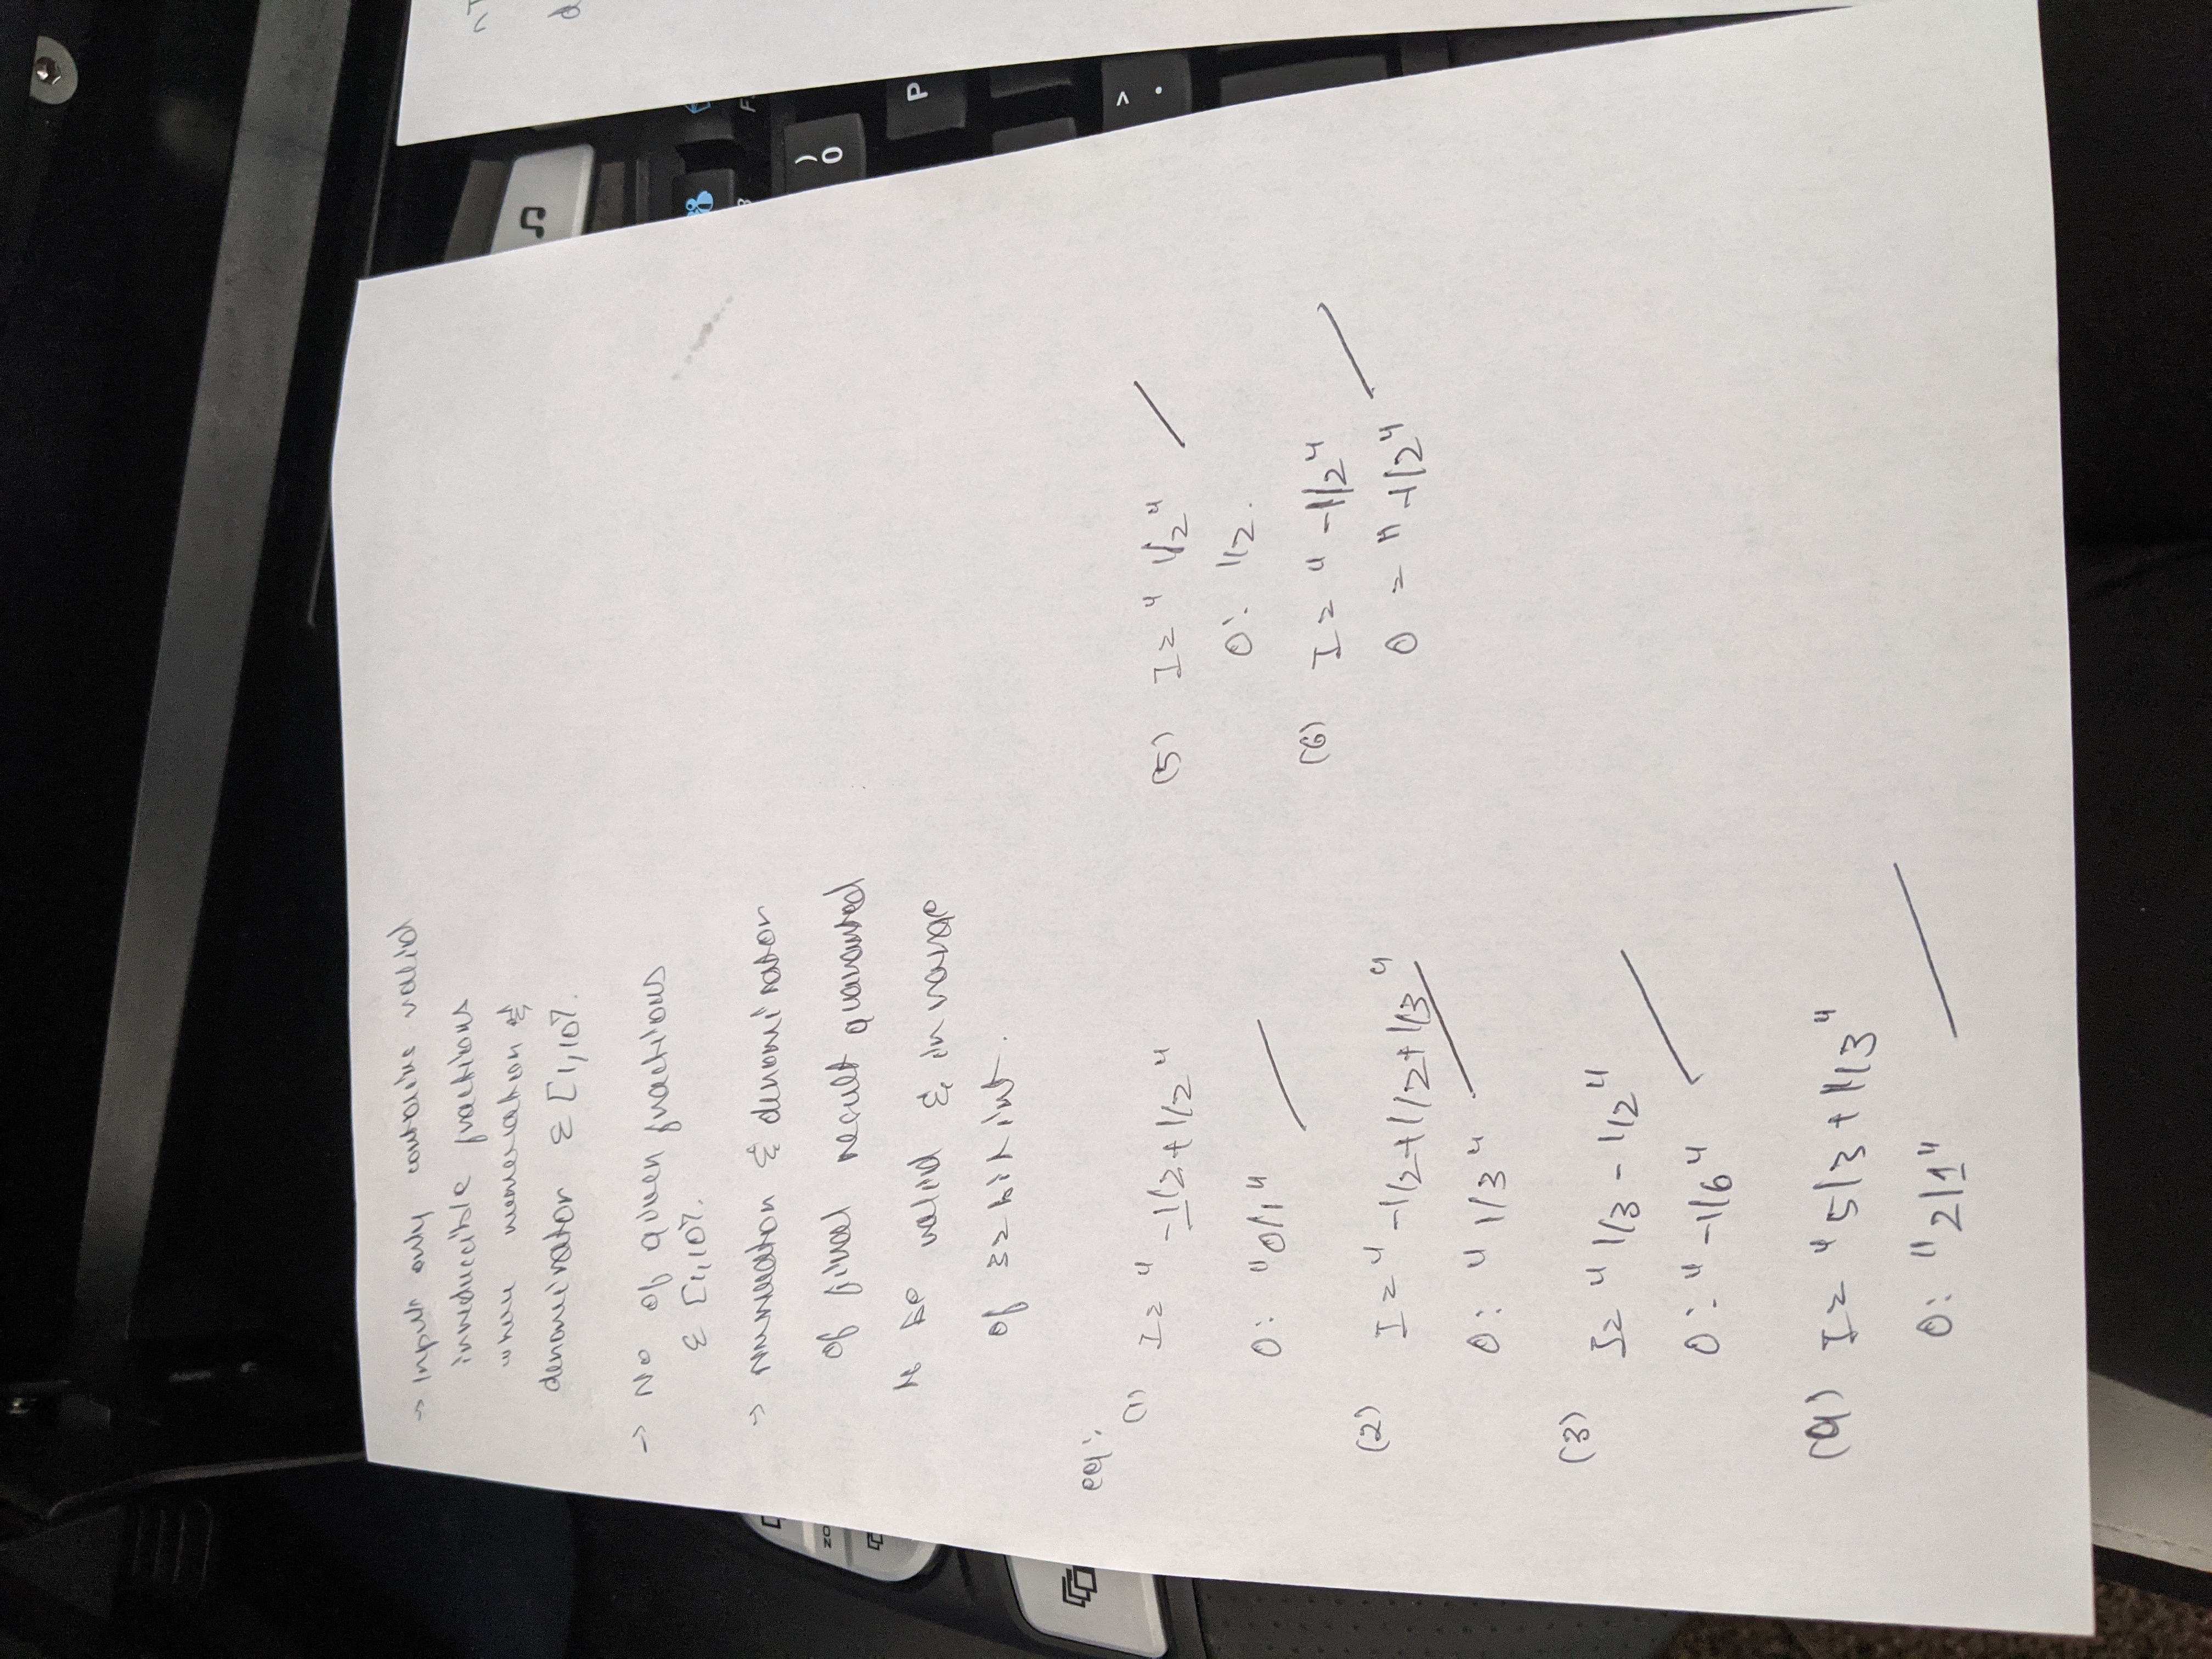 → Input only contains valid
irreduccible fractions
where numeration &
denominator ε [1,10].
→ No of given fractions
ε [1,10].
→ numeration & denominator
of final result guaranted
to be valid & in range
of 32 bit int.
eg:
(1) I = "-1/2+1/2"
O: "0/1"
(2) I = "-1/2+1/2+1/3"
O: "1/3"
(3)
I = "1/3 - 1/2"
O: "-1/6"
(4) I = "5/3 + 1/3"
O: "2/1"
(5) I = "1/2"
O: 1/2.
(6) I = "-1/2"
O = "-1/2"
ZO
)
0
P
>
.
F
d